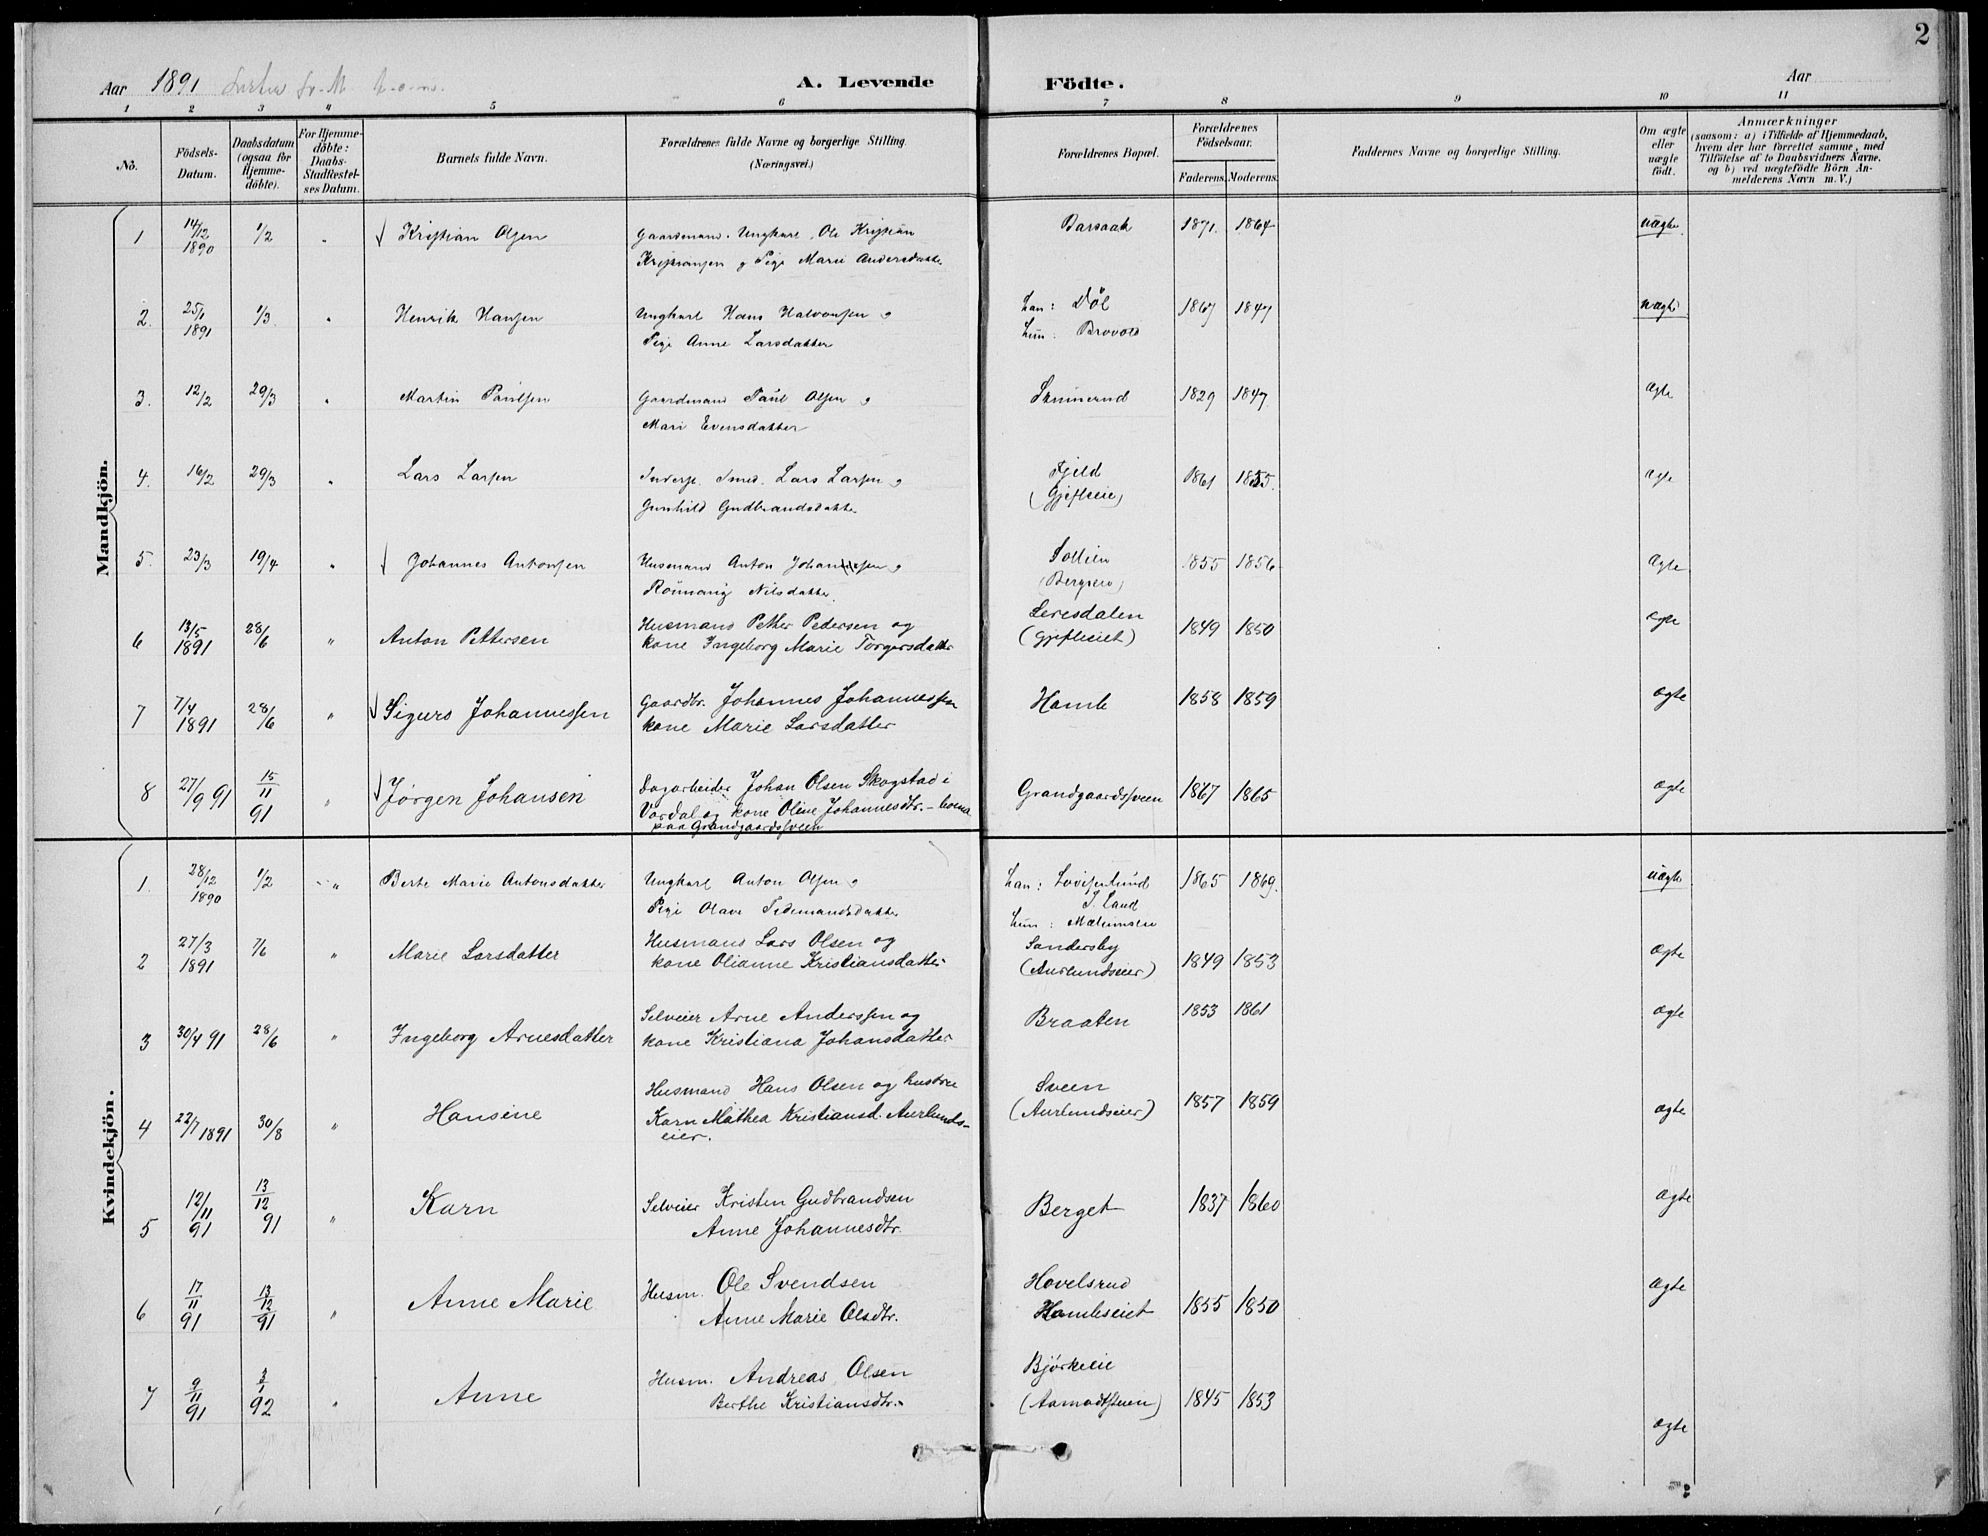 2
Aar 1891
A. Levende Födte.
Aar
1 2 3 4 5 6 7 8 9 10 11
No.
Födsels-Datum.
Daabsdatum (ogsaa för Hjemmedöbte).
For Hjemmedöbte: Daabs-Stadfæstelses Datum.
Barnets fulde Navn.
Forældrenes fulde Navne og borgerlige Stilling.
(Næringsvei.)
Forældrenes Bopæl.
Forældrenes Födselsaar.
Faderens. Moderens.
Faddernes Navne og borgerlige Stilling.
Om ægte eller uægte födt.
Anmærkninger
(saasom: a) i Tilfælde af Hjemmedaab, hvem der har forrettet samme, med Tilföielse af to Daabsvidners Navne. og b) ved uægtefödte Börn Anmelderens Navn m. V.)
Mandkjön.
1 14/12 1890 1/2 " Kristian Olsen Gaardmand. Ungkarl Ole Kristian 1871. 1864 uægte
Kristiansen og Pige Marie Andersdatter
2. 25/1 1891 1/3 " Henrik Hansen Ungkarl Hans Halvorsen og han: Döl 1867 1847 uægte
Pige Anne Larsdatter hun: Brovold
3. 12/2 29/3 " Martin Paulsen Gaardmand Paul Olsen og 1829 1847 ægte
Mari Evensdatter
4. 16/2 29/3 " Lars Larsen Inderst. Smed. Lars Larsen og Fjeld 1861 1855. ægte
Gunhild Gudbrandsdatter (Gjefleeie)
5. 23/3 19/4 " Johannes Antonsen Husmand Anton Johansen og Sollien 1855 1856 ægte
Rönnaug Nilsdatter
6 13/5 1891 28/6 " Anton Pettersen Husmand Petter Pedersen og Leresdalen 1849 1850 ægte
kone Ingeborg Marie Torgersdatter (Gjefleeiet)
7 7/4 1891 28/6 " Sigurd Johannessen Gaardbr. Johannes Johannessen Hamle 1858 1859 ægte
kone Marie Larsdatter
8 27/9 91 15/11 91 " Jørgen Johansen Dagarbeider Johan Olsen Skogstad i Grandgaardssveen 1867 1865 ægte
Vardal og kone Oline Johannesdtr. -
paa Grandgaardssveen
Kvindekjön.
1. 28/12 1890 1/2 " Berte Marie Antonsdatter Ungkarl Anton Olsen og han: Lovisenlund 1865 1869. uægte
Pige Olave Tidemandsdatter S. Land
hun:
2 27/3 1891 7/6 " Marie Larsdatter Husmand Lars Olsen og Sandersby 1849 1853 ægte
kone Olianne Kristiansdatter (Aurlundseier)
3 30/4 91 28/6 " Ingeborg Arnesdatter Selveier Arne Anderssen og Braaten 1853 1861 ægte
kone Kristiana Johansdatter
4 22/7 1891 30/8 " Hansine Husmand Hans Olsen og hustru Sveen 1857 1859 ægte
Karn Mathea Kristiansd. Aurlunds- (Aurlundseier)
eier.
5 12/11 91 13/12 91 " Karn Selveier Kristen Gudbrandsen Berget 1837 1860 ægte
Anne Johannesdtr.
6 17/11 91 13/12 91 " Anne Marie Husm. Ole Svendsen Hovelsrud 1855 1850 ægte
Anne Marie Olsdtr. Hamleeiet
7 9/11 91 3/1 92 " Anne Husm. Andreas Olsen Bjørkeeie 1845 1853 ægte
Berthe Kristiansdtr.